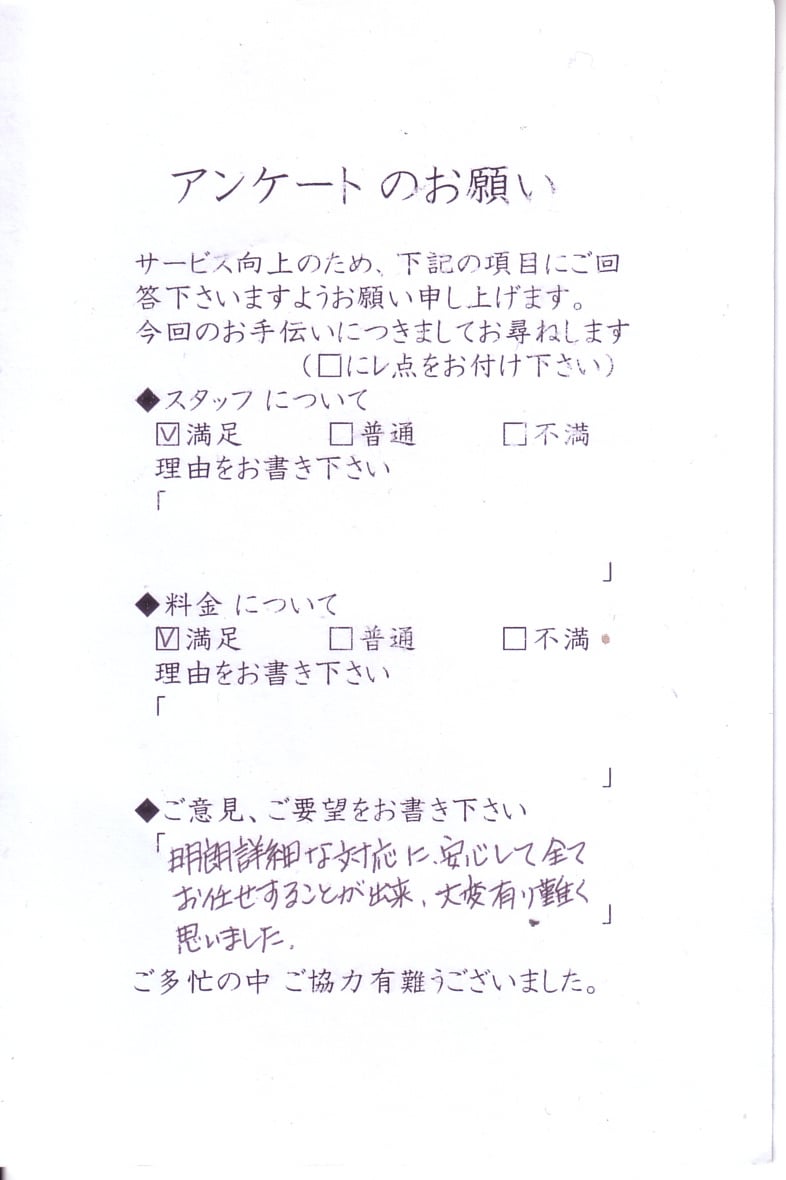 アンケートのお願い
サービス向上のため、下記の項目にご回
答下さいますようお願い申し上げます。
今回のお手伝いにつきましてお尋ねします
(□にレ点をお付け下さい)
◆スタッフ について
☑満足 □普通 □不満
理由をお書き下さい
「
」
◆料金 について
☑満足 □普通 □不満
理由をお書き下さい
「
」
◆ご意見、ご要望をお書き下さい
「明朗詳細な対応に、安心して全て
お任せすることが出来、大変有り難く
」
思いました。
ご多忙の中 ご協力有難うございました。